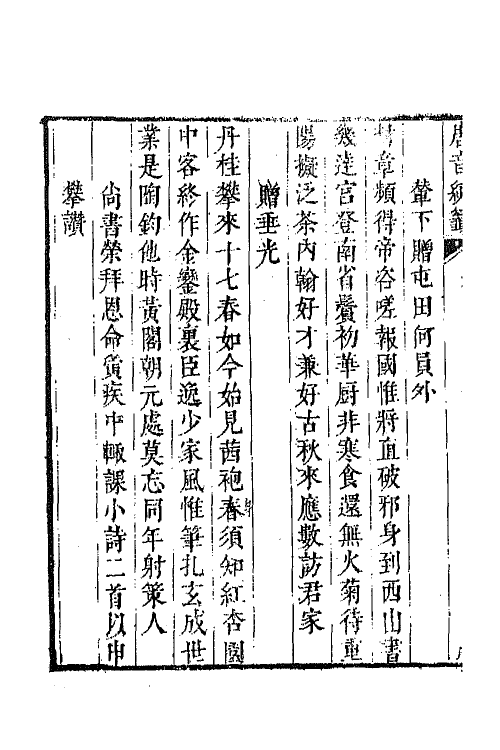 唐音統籤
輦下贈屯田何員外
封章頻得帝咨嗟報國惟將直破邪身到西山書
幾達官登南省鬢初華厨非寒食還無火菊待重
陽擬泛茶內翰好才兼好古秋來應數訪君家
贈垂光
丹桂攀來十七春如今始見茜袍新須知紅杏園
中客終作金鑾殿裏臣逸少家風惟筆札玄成世
業是陶鈞他時黃閣朝元處莫忘同年射策人
尚書榮拜恩命夤疾中輒課小詩二首以申
攀讚